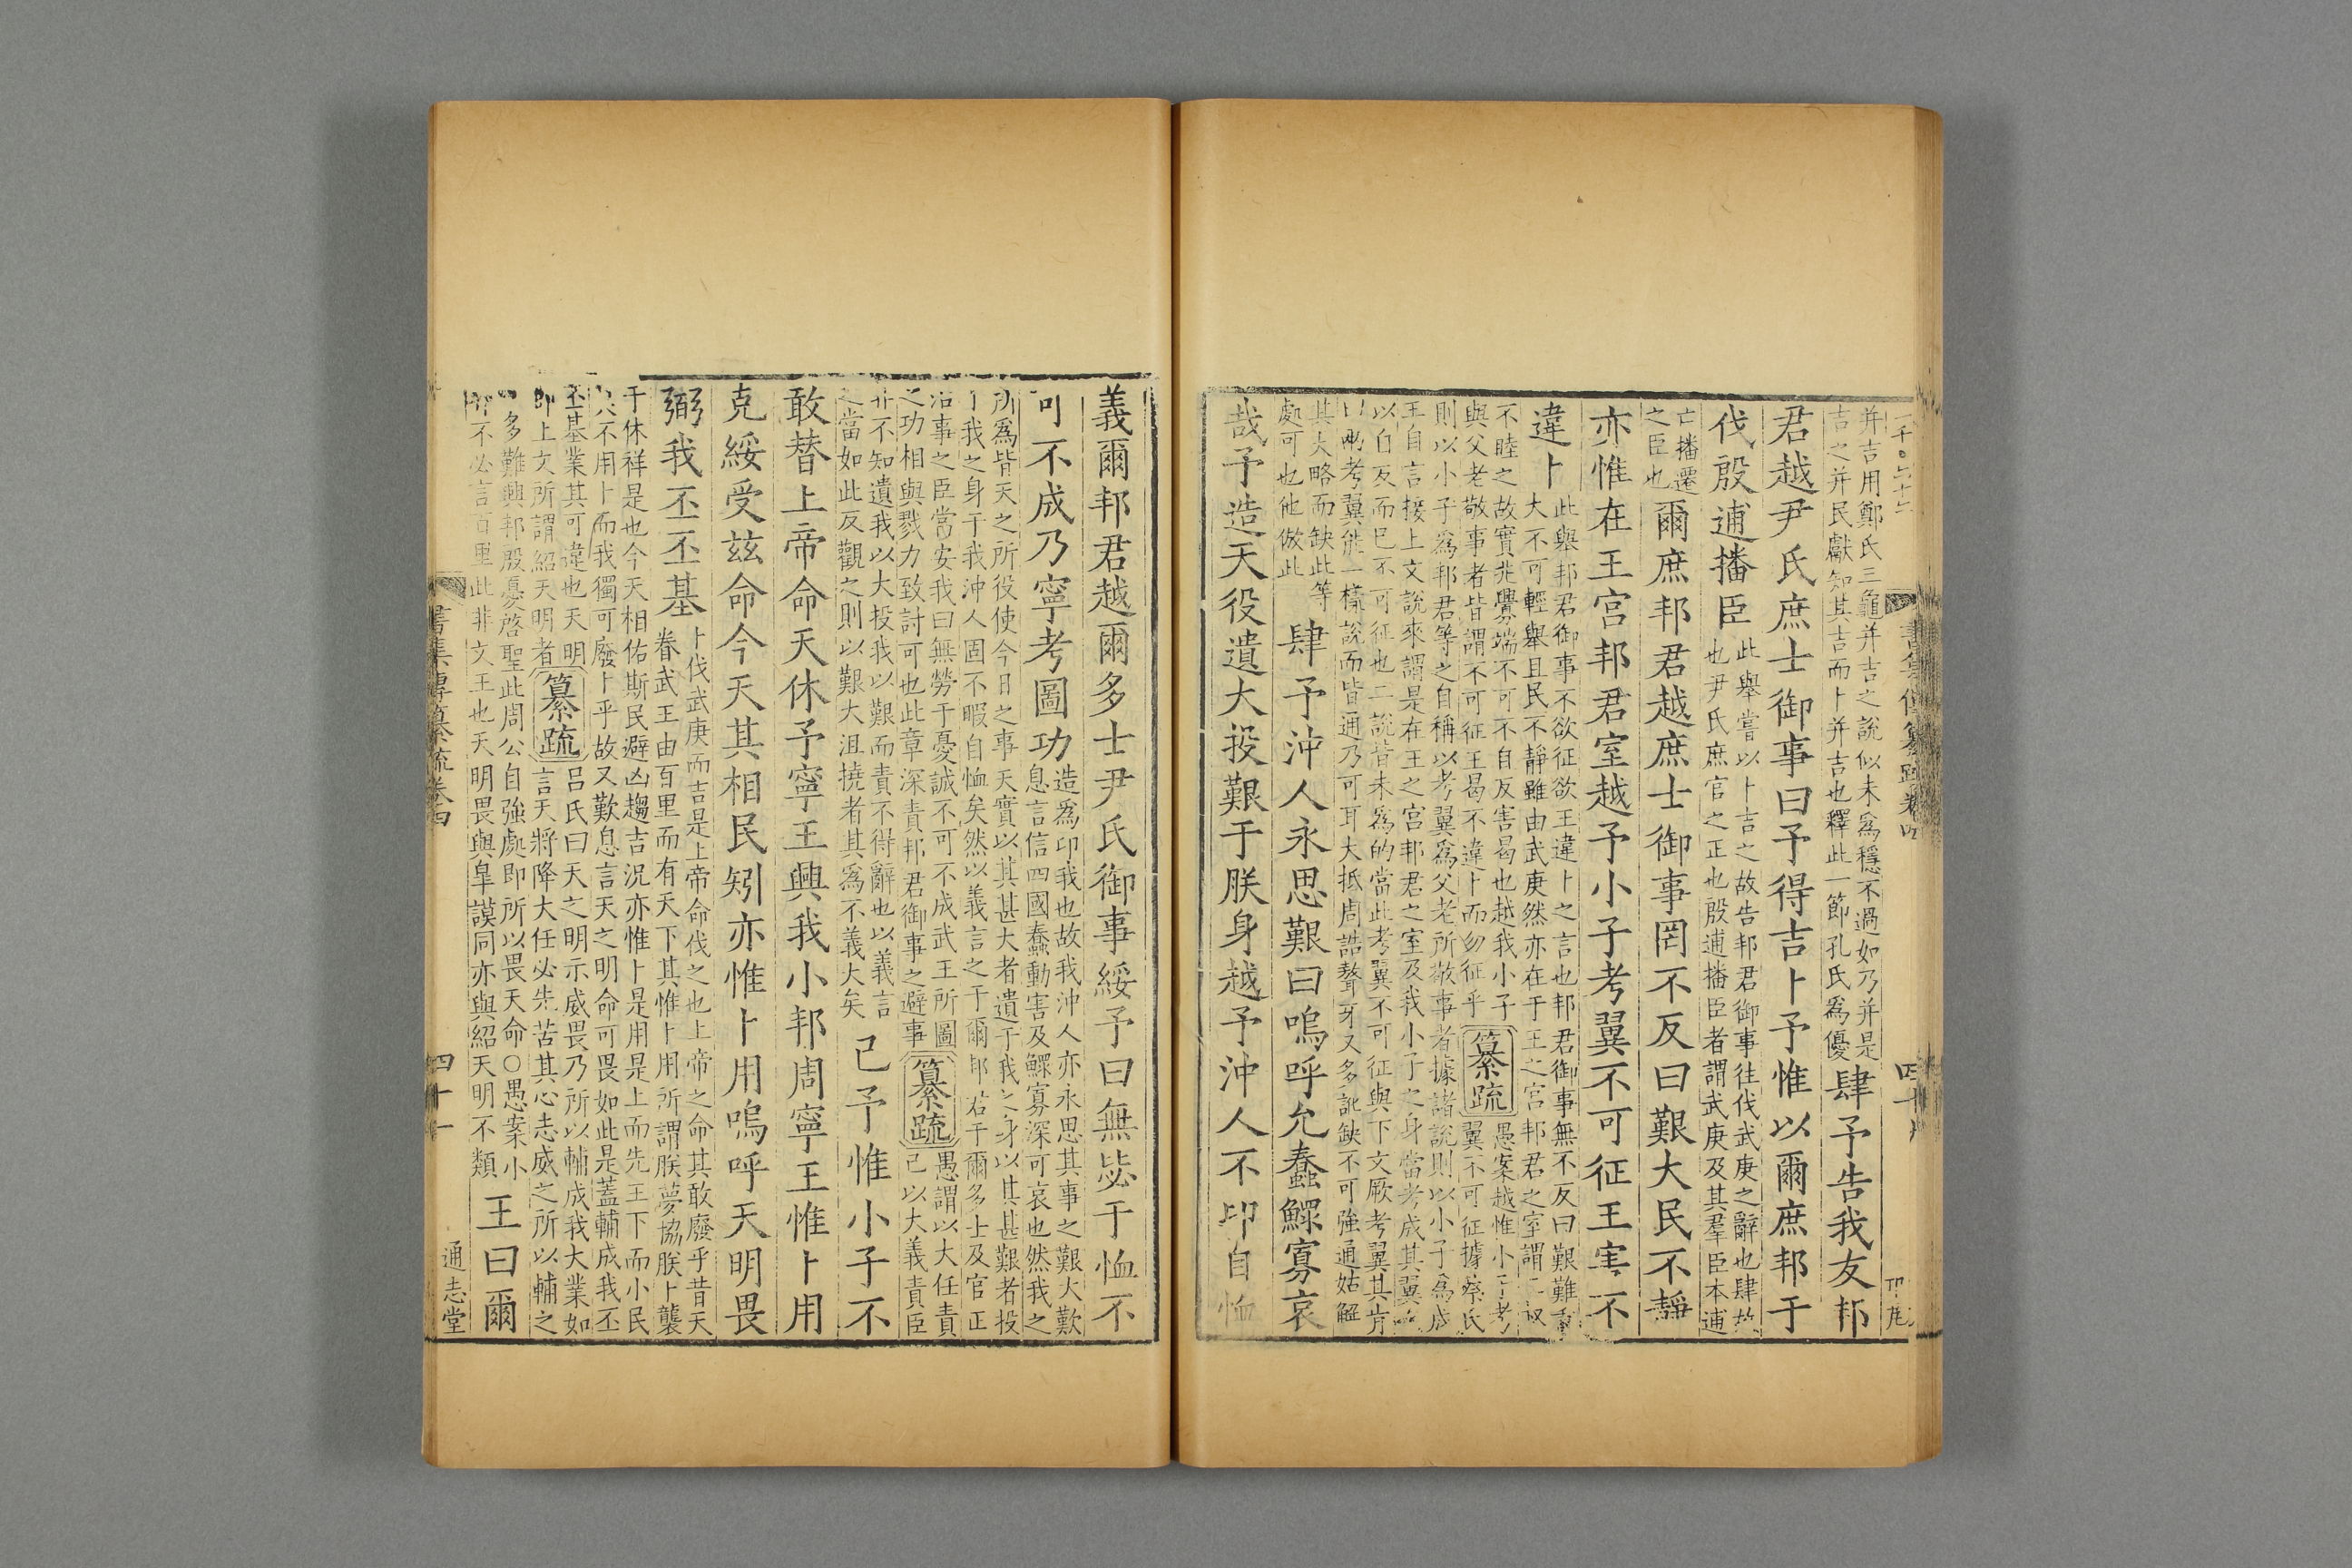 并吉用鄭氏三龜并吉之說似未爲穩不過如乃并是
吉之并民獻知其吉而卜并吉也釋此一節孔氏爲優
肆予告我友邦
君越尹氏庶士御事曰予得吉卜予惟以爾庶邦于
伐殷逋播臣
此舉嘗以卜吉之故告邦君御事往伐武庚之辭也肆故
也尹氏庶官之正也殷逋播臣者謂武庚及其羣臣本逋
亡播遷
之臣也
爾庶邦君越庶士御事罔不反曰艱大民不靜
亦惟在王宮邦君室越予小子考翼不可征王害不
違卜
此舉邦君御事不欲征欲王違卜之言也邦君御事無不反曰艱難重
大不可輕舉且民不靜雖由武庚然亦在于王之宮邦君之室謂三叔
不睦之故實兆釁端不可不自反害曷也越我小子
與父老敬事者皆謂不可征王曷不違卜而勿征乎
纂疏
愚案越惟小子考
翼不可征據蔡氏
則以小子爲邦君等之自稱以考翼爲父老所敬事者據諸說則以小子爲成
王自言接上文說來謂是在王之宮邦君之室及我小子之身當考成其翼
以自反而已不可征也二說皆未爲的當此考翼不可征與下文厥考翼其肯
考翼能一樣說而皆通乃可耳大抵周誥聱牙又多訛缺不可強通姑解
其大略而缺此等
處可也他倣此
肆予沖人永思艱曰嗚呼允蠢鰥寡哀
哉予造天役遺大投艱于朕身越予沖人不卬自恤
書集傳纂疏卷四
義爾邦君越爾多士尹氏御事綏予曰無毖于恤不
可不成乃寧考圖功
造爲卬我也故我沖人亦永思其事之艱大歎
息言信四國蠢動害及鰥寡深可哀也然我之
所爲皆天之所役使今日之事天實以其甚大者遺于我之身以其甚艱者投
于我之身于我沖人固不暇自恤矣然以義言之于爾邦君于爾多士及官正
治事之臣當安我曰無勞于憂誠不可不成武王所圖
之功相與戮力致討可也此章深責邦君御事之避事
纂疏
愚謂以大任責
己以大義責臣
非不知遺我以大投我以艱而責不得辭也以義言
之當如此反觀之則以艱大沮撓者其爲不義大矣
已予惟小子不
敢替上帝命天休予寧王興我小邦周寧王惟卜用
克綏受茲命今天其相民矧亦惟卜用嗚呼天明畏
弼我丕丕基
卜伐武庚而吉是上帝命伐之也上帝之命其敢廢乎昔天
眷武王由百里而有天下其惟卜用所謂朕夢協朕卜襲
于休祥是也今天相佑斯民避凶趨吉況亦惟卜是用是上而先王下而小民
不用卜而我獨可廢卜乎故又歎息言天之明命可畏如此是蓋輔成我丕
丕基業其可違也天明
即上文所謂紹天明者
纂疏
呂氏曰天之明示威畏乃所以輔成我大業如
言天將降大任必先苦其心志威之所以輔之
多難興邦殷憂啓聖此周公自強處即所以畏天命○愚案小
邦不必言百里此非文王也天明畏與臯謨同亦與紹天明不類
王曰爾
書集傳纂疏卷四
四十一
通志堂